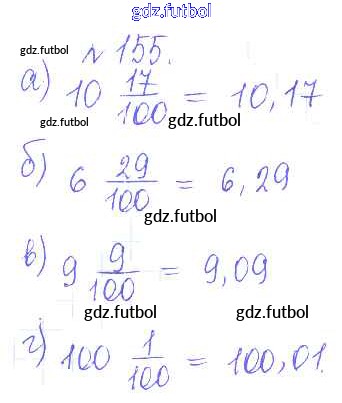 gdz.futbol
gdz.futbol № 155.
а) 10 17/100 = 10,17
gdz.futbol gdz.futbol
б) 6 29/100 = 6,29
gdz.futbol
в) 9 9/100 = 9,09
gdz.futbol gdz.futbol
г) 100 1/100 = 100,01.